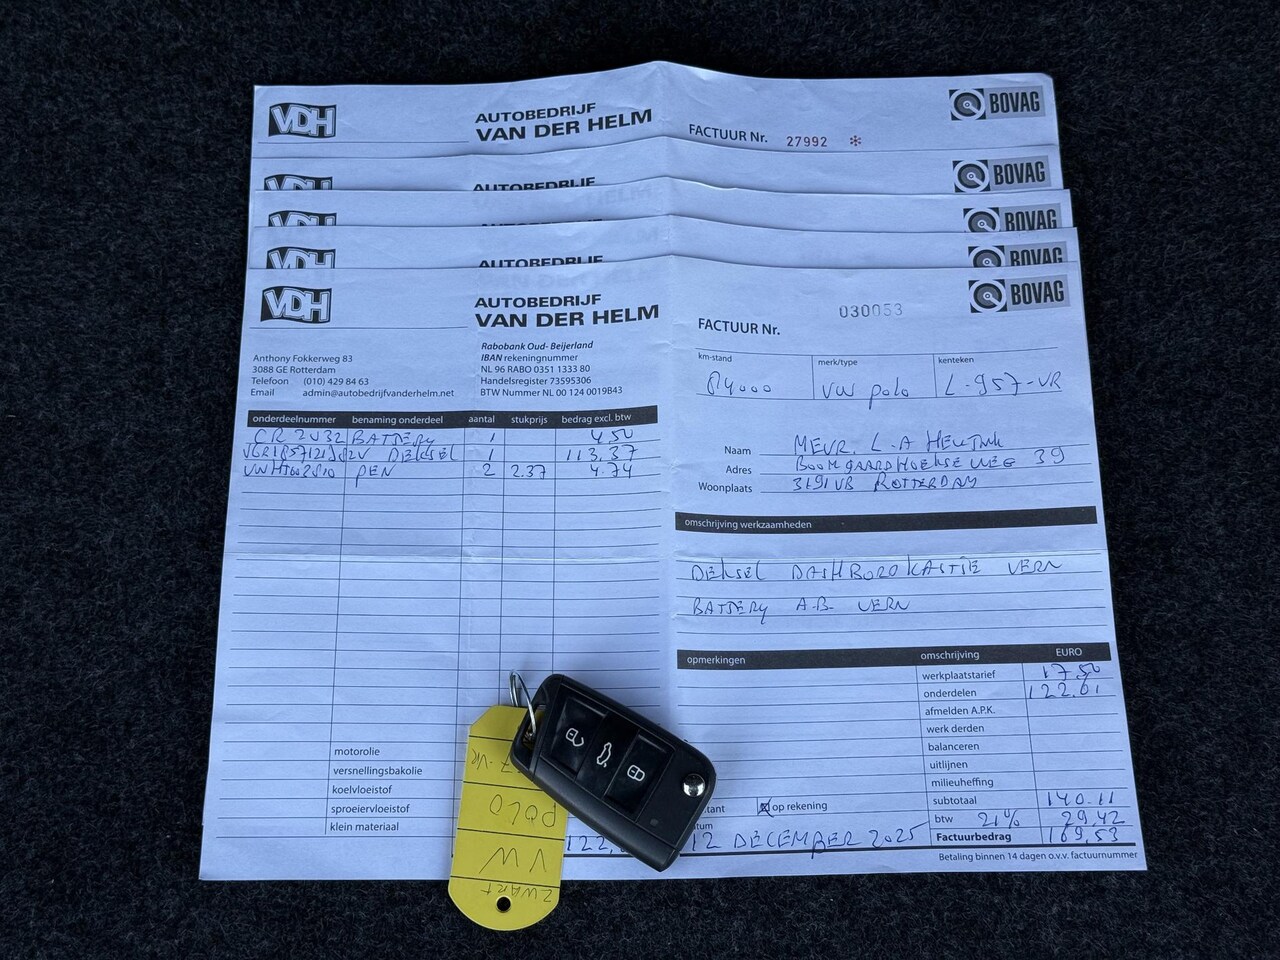 VDH
AUTOBEDRIJF
VAN DER HELM
FACTUUR Nr. 27992 *
BOVAG
VDH
AUTOBEDRIJF
BOVAG
VDH
BOVAG
VDH
AUTOBEDRIJF
BOVAG
VDH
AUTOBEDRIJF
VAN DER HELM
BOVAG
FACTUUR Nr. 030053
Anthony Fokkerweg 83
3088 GE Rotterdam
Telefoon (010) 429 84 63
Email admin@autobedrijfvanderhelm.net
Rabobank Oud- Beijerland
IBAN rekeningnummer
NL 96 RABO 0351 1333 80
Handelsregister 73595306
BTW Nummer NL 00 124 0019B43
km-stand merk/type kenteken
84000 VW polo L-957-VR
onderdeelnummer benaming onderdeel aantal stukprijs bedrag excl. btw
CR 2032 BATTERY 1 4,50
DEKSEL 1 113.37
PEN 2 2.37 4.74
Naam MEVR. L-A
Adres 39
Woonplaats 3191VB ROTTERDAM
omschrijving werkzaamheden
DEKSEL DASHBORDKASTJE VERN
BATTERY A.B. VERN
opmerkingen
omschrijving EURO
werkplaatstarief 17.50
onderdelen 122.61
afmelden A.P.K.
werk derden
balanceren
uitlijnen
milieuheffing
subtotaal 140.11
btw 21% 29,42
Factuurbedrag 169,53
motorolie
versnellingsbakolie
koelvloeistof
sproeiervloeistof
klein materiaal
op rekening
12 DECEMBER 2025
Betaling binnen 14 dagen o.v.v. factuurnummer
ZWART
VW
POLO
7-VR